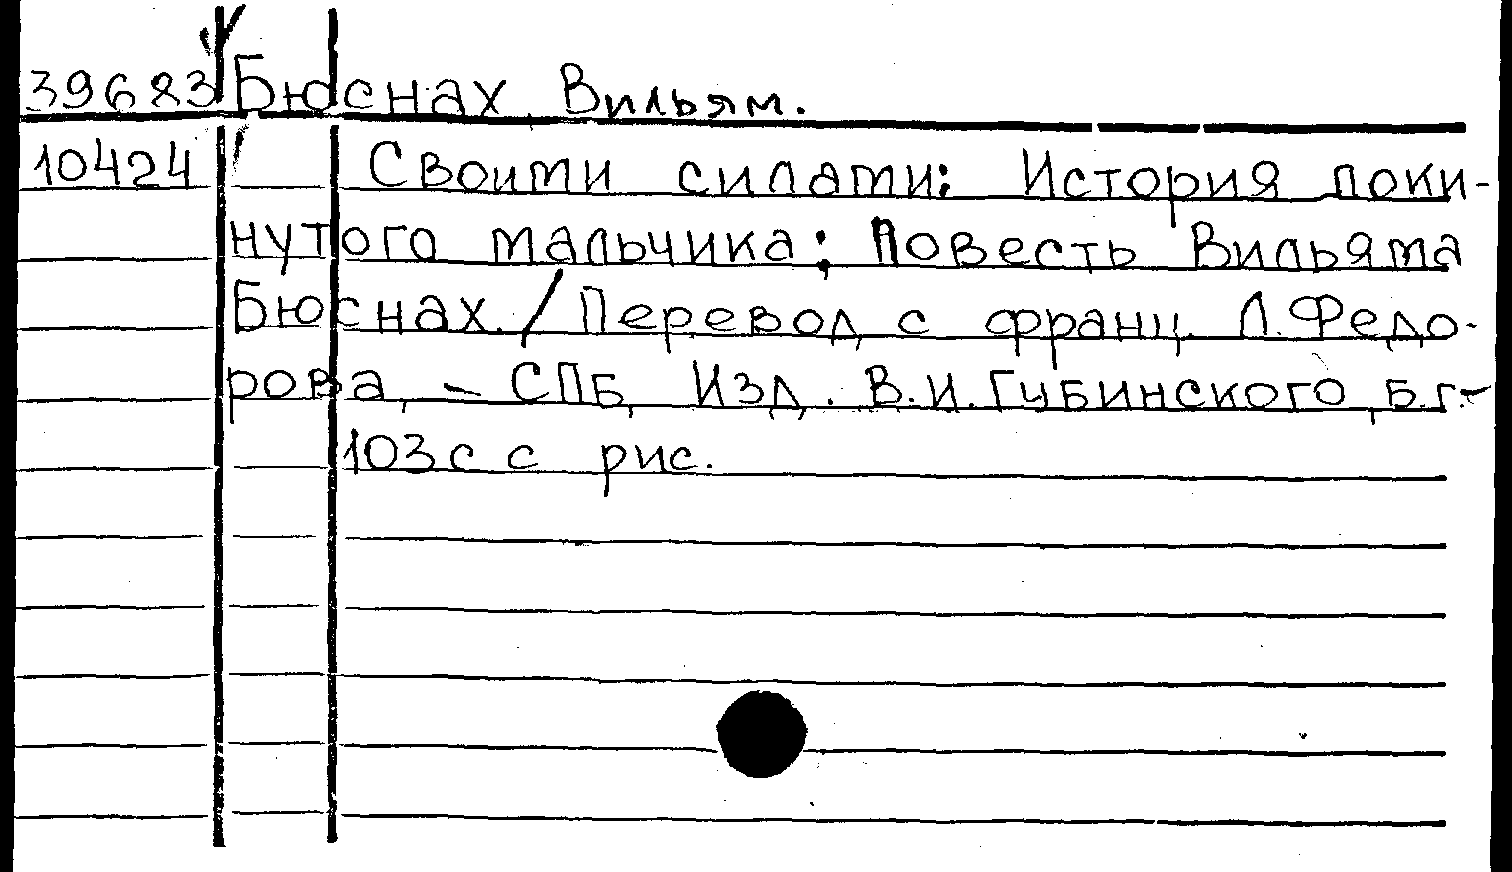 39683 Бюснах, Вильям.
10424 Своими силами: История поки-
нутого мальчика: Повесть Вильяма
Бюснах. / Перевод с франц. Л. Федо-
рова, - СПБ, Изд. В.И. Губинского, Б.г.-
103 с с рис.